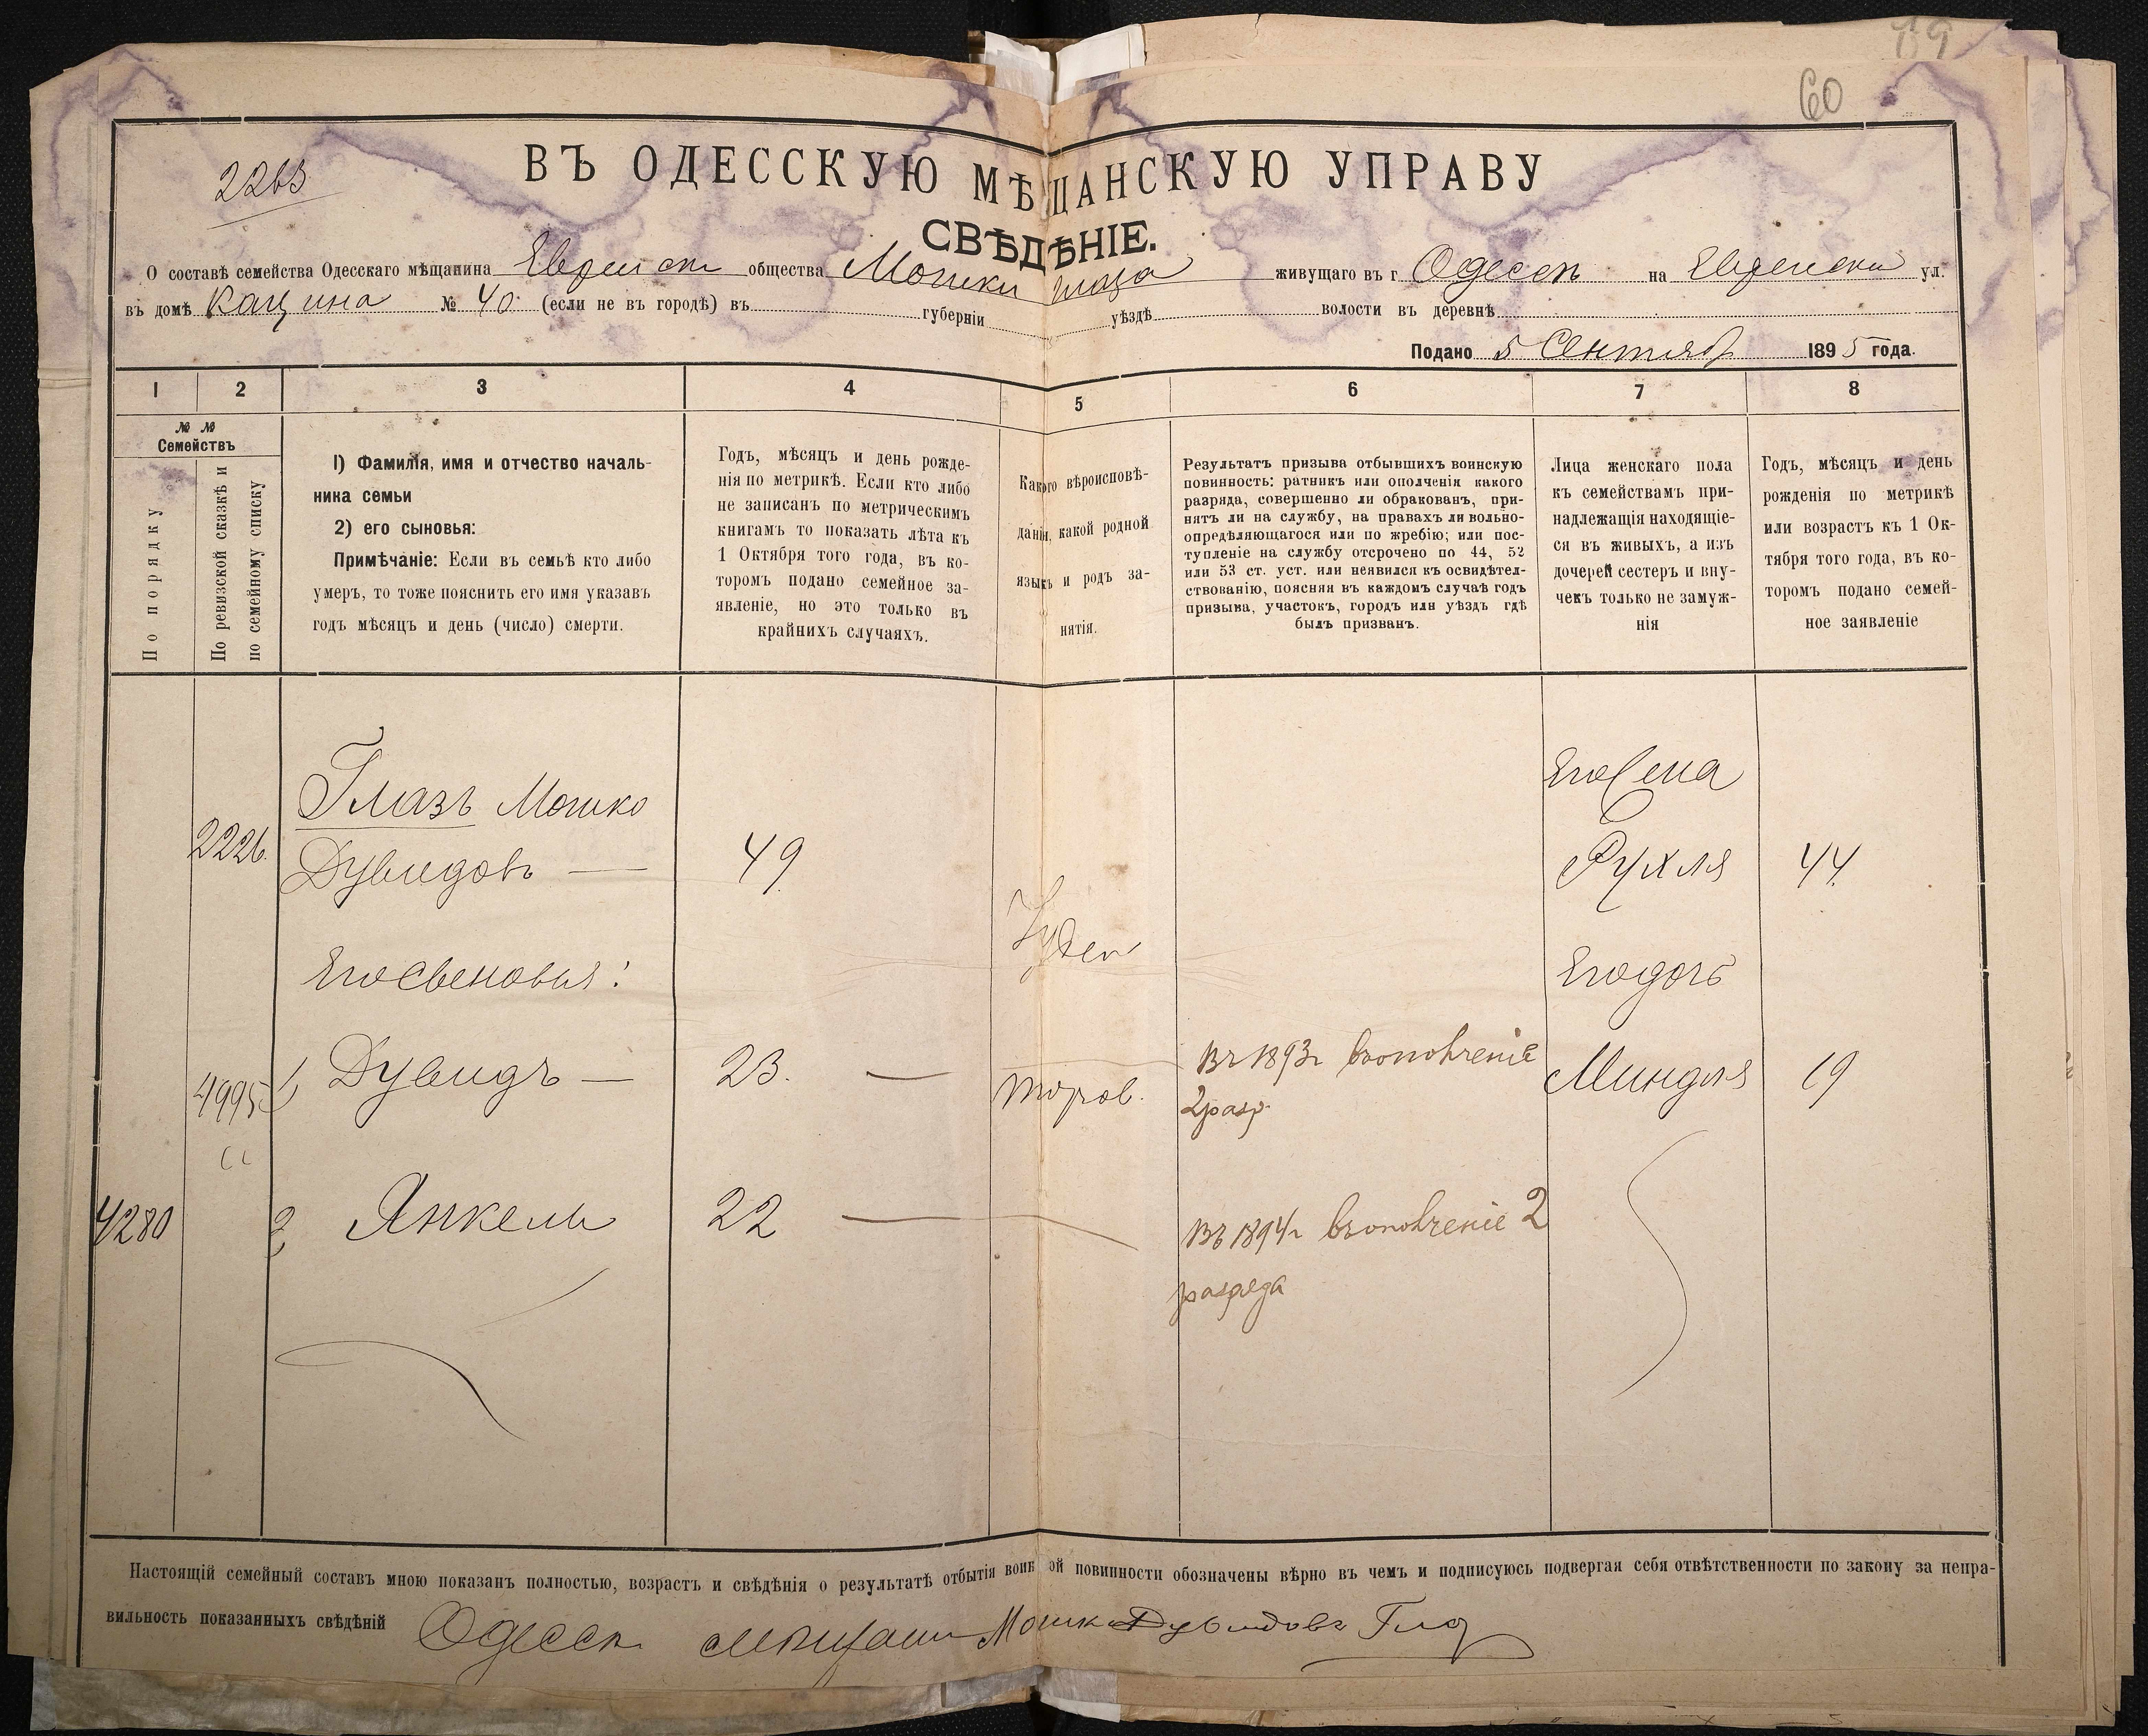 19
60
2263
ВЪ ОДЕССКУЮ МѢЩАНСКУЮ УПРАВУ
СВѢДѢНІЕ.
О составѣ семейства Одесскаго мѣщанина Еврейск общества Мошки Глаза живущаго въ г Одессѣ на Еврейски ул.
въ домѣ Кацина № 40 (если не въ городѣ) въ губерніи уѣздѣ волости въ деревнѣ
Подано 5 Сентяб 1895 года.
1 2 3 4 5 6 7 8
№ №
Семействъ
По порядку
По ревизской сказкѣ и
по семейному списку
1) Фамилія, имя и отчество началь-
ника семьи
2) его сыновья:
Примѣчаніе: Если въ семьѣ кто либо
умеръ, то тоже пояснить его имя указавъ
годъ мѣсяцъ и день (число) смерти.
Годъ, мѣсяцъ и день рожде-
нія по метрикѣ. Если кто либо
не записанъ по метрическимъ
книгамъ то показать лѣта къ
1 Октября того года, въ ко-
торомъ подано семейное за-
явленіе, но это только въ
крайнихъ случаяхъ.
Какого вѣроисповѣ-
данія, какой родной
языкъ и родъ за-
нятія.
Результатъ призыва отбывшихъ воинскую
повинность: ратникъ или ополченія какого
разряда, совершенно ли обракованъ, при-
нятъ ли на службу, на правахъ ли вольно-
опредѣляющагося или по жребію; или пос-
тупленіе на службу отсрочено по 44, 52
или 53 ст. уст. или неявился къ освидѣтел-
ствованію, поясняя въ каждомъ случаѣ годъ
призыва, участокъ, городъ или уѣздъ гдѣ
былъ призванъ.
Лица женскаго пола
къ семействамъ при-
надлежащія находящіе-
ся въ живыхъ, а изъ
дочерей сестеръ и вну-
чекъ только не замуж-
нія
Годъ, мѣсяцъ и день
рожденія по метрикѣ
или возрастъ къ 1 Ок-
тября того года, въ ко-
торомъ подано семей-
ное заявленіе
Глазъ Мошко
Его жена
2226. Дувидовъ — 49 Рухля 44
Іудей
Его сыновья: Его дочь
4995 1 Дувидъ — 23. — торгов. Въ 1893г въ ополченіе Миндля 19
2 разр.
4280 2 Янкель 22 — Въ 1894г въ ополченіе 2
разряда
Настоящій семейный составъ мною показанъ полностью, возрастъ и свѣдѣнія о результатѣ отбытія воинской повинности обозначены вѣрно въ чемъ и подписуюсь подвергая себя отвѣтственности по закону за непра-
вильность показанныхъ свѣдѣній Одесск мещани Мошка Дувидовъ Глаз